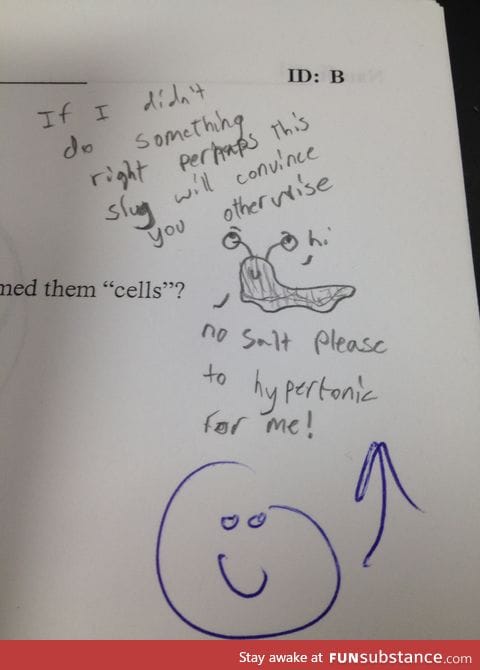 ID: B
If I didn't
do something
right perhaps this
slug will convince
you otherwise
hi
med them "cells"?
no salt please
to hypertonic
for me!
Stay awake at FUNsubstance.com